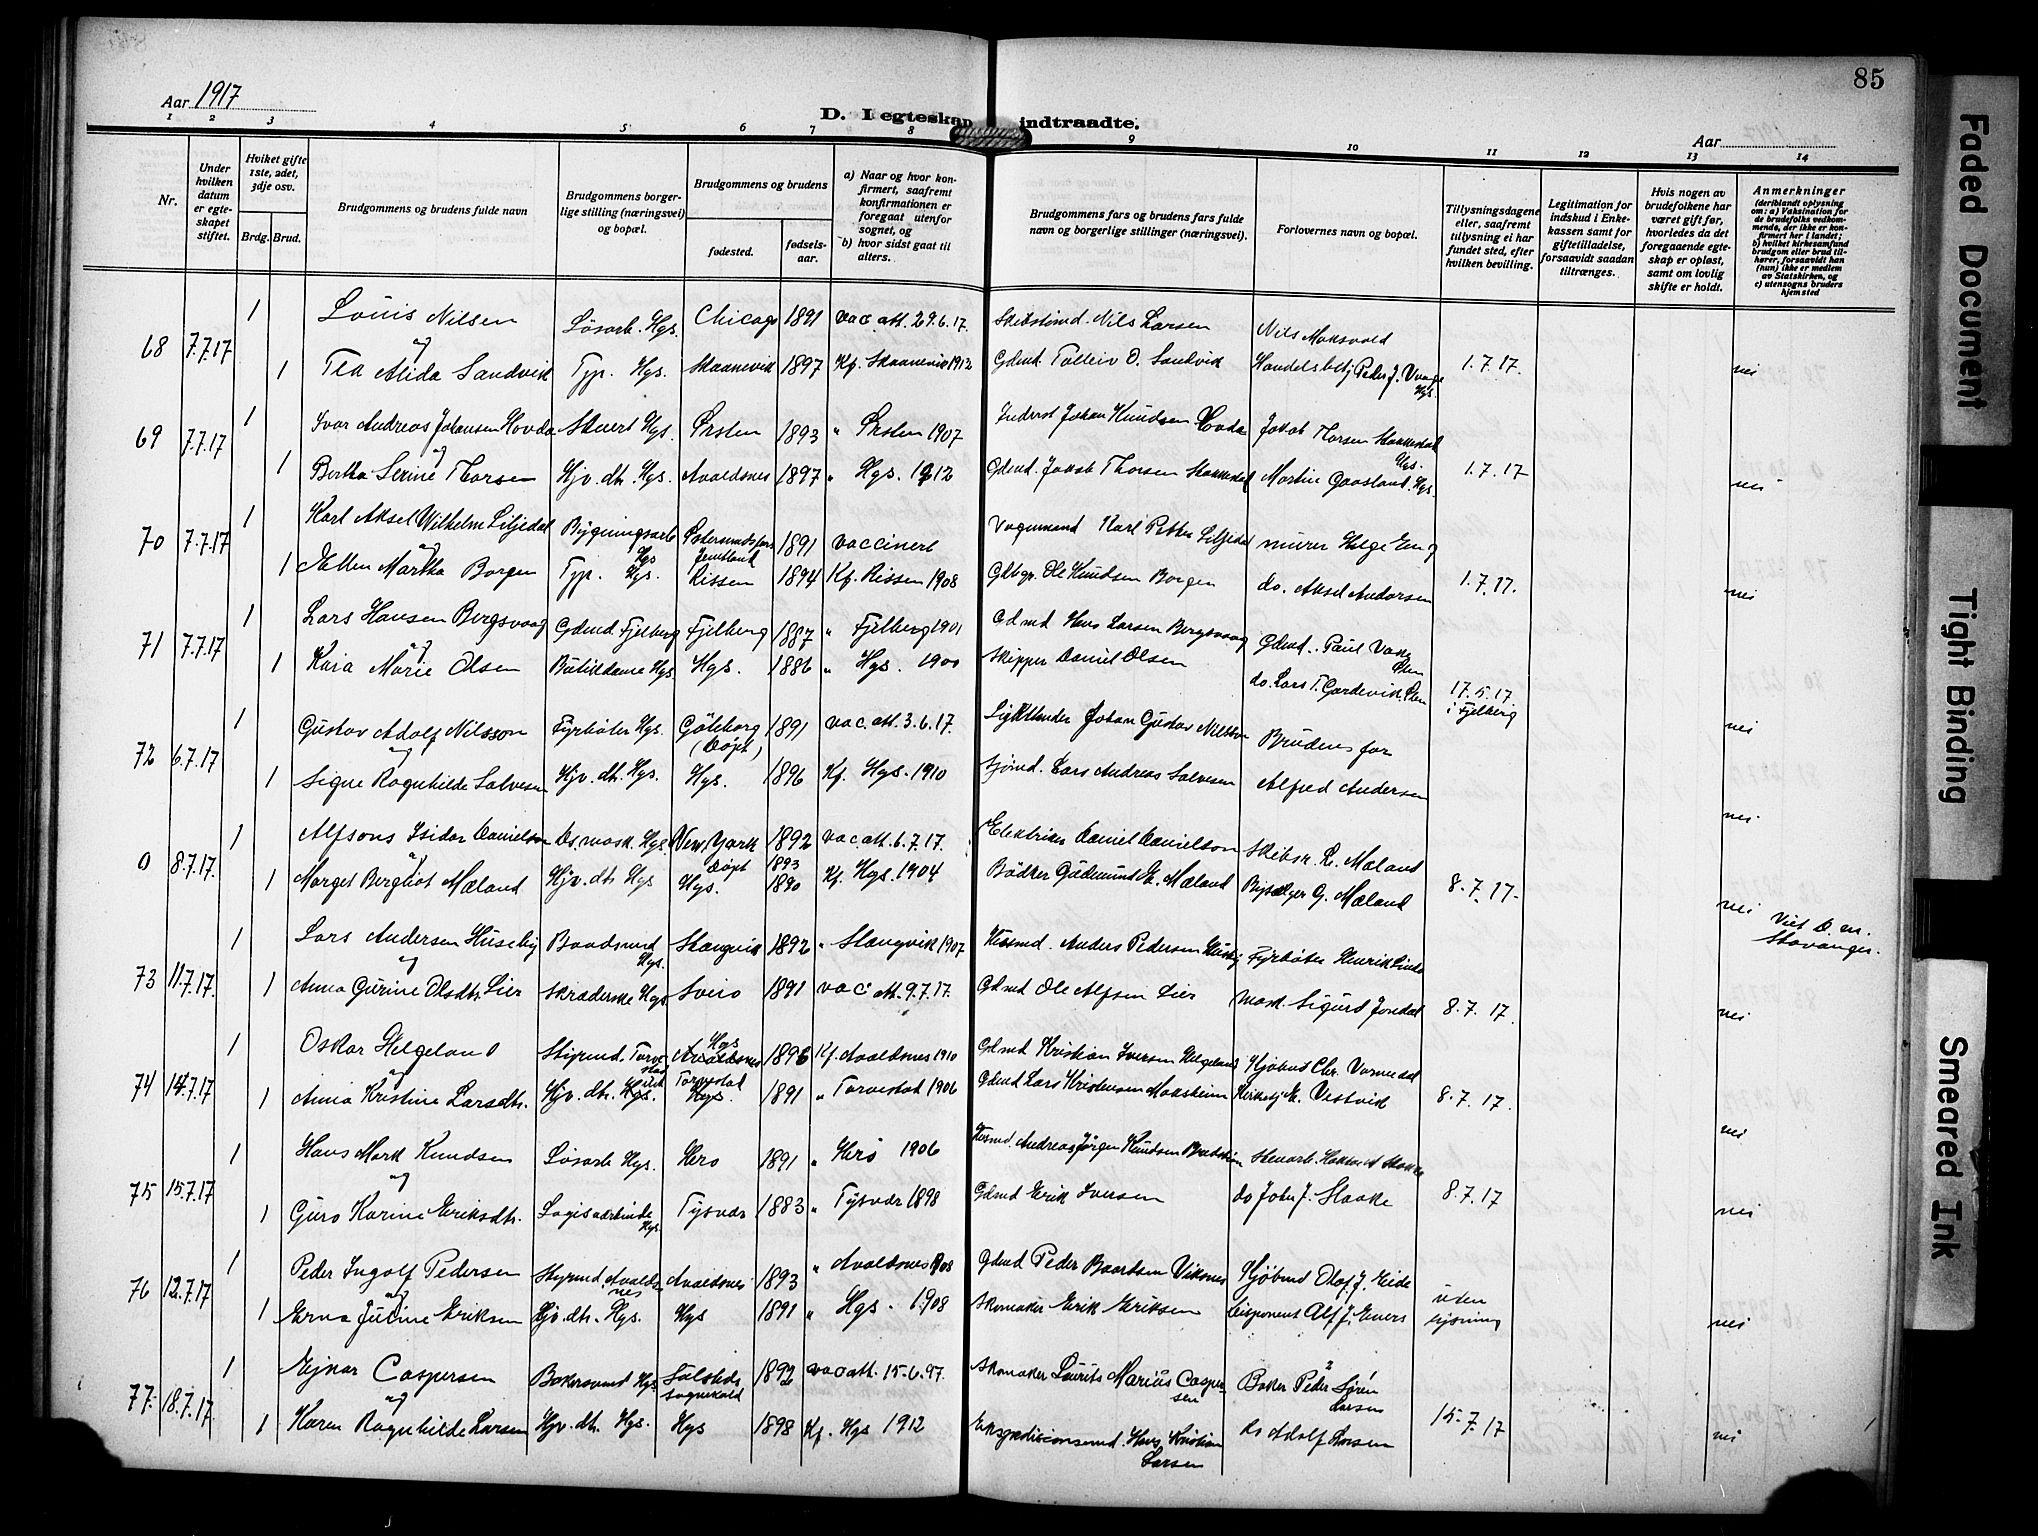 85
Aar 1917
D. I egteskap indtraadte.
Aar
1 2 3 4 5 6 7 8 9 10 11 12 13 14
Nr.
Under hvilken datum er egteskapet stiftet.
Hvilket gifte 1ste, 2det, 3dje osv.
Brdg. Brud.
Brudgommens og brudens fulde navn
Brudgommens borgerlige stilling (næringsvei) og bopæl.
Brudgommens og brudens
fødested.
fødselsaar.
a) Naar og hvor konfirmert, saafremt konfirmationen er foregaat utenfor sognet, og
b) hvor sidst gaat til alters.
Brudgommens fars og brudens fars fulde navn og borgerlige stillinger (næringsvei).
Forlovernes navn og bopæl.
Tillysningsdagene eller, saafremt tillysning ei har fundet sted, efter hvilken bevilling.
Legitimation for indskud i Enkekassen samt for giftetilladelse, forsaavidt saadan tiltrænges.
Hvis nogen av brudefolkene har været gift før, hvorledes da det foregaaende egteskap er opløst, samt om lovlig skifte er holdt.
Anmerkninger
(deriblandt oplysning om: a) Vaksination for de brudefolks vedkommende, der ikke er konfirmert her i landet; b) hvilket kirkesamfund brudgom eller brud tilhører, forsaavidt han (hun) ikke er medlem av Statskirken, og c) utensogns bruders hjemsted
1 Louis Nilsen Løsarb. Hgs. Chicago 1891 vac. att. 29.6.17. Nils Larsen Nils
68 7.7.17 og
1 Tea Alida Sandvik Typ. Hgs. Skaanevik 1897 Kf. Skaanevik 1912 Gdmd. Tolleiv O. Sandvik Handelsbetj Peder J. Hgs. 1.7.17. nei
1 Ivar Andreas Johansen Hovda Hgs. Ørsten 1893 " Ørsten 1907 Inderst Johan Knudsen Jakob Thorsen Hgs.
69 7.7.17 og
1 Bertha Serine Thorsen Hjv. dtr. Hgs. Avaldsnes 1897 " Hgs. 1912 Gdmd. Jakob Thorsen Martin Gaasland. Hgs. 1.7.17 nei
1 Karl Aksel Wilhelm Liljedal Bygningsarb Hgs Jemtland 1891 vaccinert Karl Petter Liljedal murer Helge
70 7.7.17 og
1 Martha Borgen Typ. Hgs. Rissen 1894 Kf. Rissen 1908 Gdbgr. Ole Knudsen Borgen do. Aksel Andersen 1.7.17. nei
1 Lars Hansen Bergsvaag Gdmd. Fjelberg Fjelberg 1887 " Fjelberg 1901 Gdmd Hans Larsen Bergsvaag Gdmd. Paul
71 7.7.17 og
1 Kaia Marie Olsen Butikdame Hgs. Hgs. 1886 " Hgs. 1900 Skipper Daniel Olsen do. Lars T. 17.5.17. i Fjelberg nei
1 Gustav Adolf Nilsson Fyrbøter Hgs. Göteborg (døpt) 1891 vac. att. 3.6.17. Johan Gustav Nilsson Brudens far
72 6.7.17 og
1 Signe Ragnhilde Salvesen Hjv. dtr. Hgs. Hgs. 1896 Kf. Hgs. 1910 Sjømd. Lars Andreas Salvesen Alfred Andersen nei
1 Alfsons Isidor Danielson Ds. mask. Hgs. New York døpt 1892 1893 vac. att. 6.7.17. Elektriker Daniel Danielson Skibsr. L. Mæland
0 8.7.17. og
1 Marget Bergliot Mæland Hjv. dtr. Hgs Hgs. 1890 Kf. Hgs. 1904 Bødker Gudmund Mæland G. Mæland 8.7.17. nei Viet D. m. Stavanger.
1 Lars Andersen Huseby Baadsmd Hgs. Stangvik 1892 " Stangvik 1907 Husmd. Anders Pedersen Huseby Fyrbøter Henrik
73 11.7.17. og
1 Anna Gurine Olsdtr. Lier Skrædderske Hgs Sveio 1891 vac att. 9.7.17. Gdmd Ole Alfsen Lier Mask. Sigurd Jondal 8.7.17. nei
1 Oskar Helgeland Styrmd. Torvestad Hgs Avaldsnes 1896 Kf. Avaldsnes 1910 Gdmd Kristian Iversen Helgeland Kjøbmd Chr.
74 14.7.17 og
1 Anna Kristine Larsdtr. Hjv. dtr. Hgs. Torvestad Hgs. 1891 " Torvestad 1906 Gdmd Lars Kristensen Vestvik 8.7.17. nei
1 Hans Mork Knudsen Løsarb Hgs. Herø 1891 " Herø 1906 Husmd. Andreas Jørgen Knudsen
75 15.7.17 og
1 Guro Karine Eriksdtr. Hgs. Tysvær 1883 " Tysvær 1898 Gdmd Erik Iversen do John J. 8.7.17 nei
1 Peder Ingolf Pedersen Styrmd. Avaldsnes Avaldsnes 1893 " Avaldsnes 1908 Gdmd Peder Baardsen Viksnes Kjøbmd Olaf J. Eide
76 12.7.17 og
1 Erna Juline Eriksen Hjv. dtr. Hgs. Hgs 1891 " Hgs. 1908 Skomaker Erik Eriksen Disponent Alf J. uten lysning nei
1 Ejnar Caspersen Bakersvend Hgs 1892 vac att. 15.6.97. Skomaker Laurits Marius Caspersen Baker Peder Søren Larsen
77. 18.7.17 og
1 Karen Ragnhilde Larsen Hjv. dtr. Hgs. Hgs 1898 Kf. Hgs 1912 Ekspeditionsmd. Hans Kristian Larsen do Adolf Larsen 15.7.17 nei
Faded Document
Tight Binding
Smeared Ink